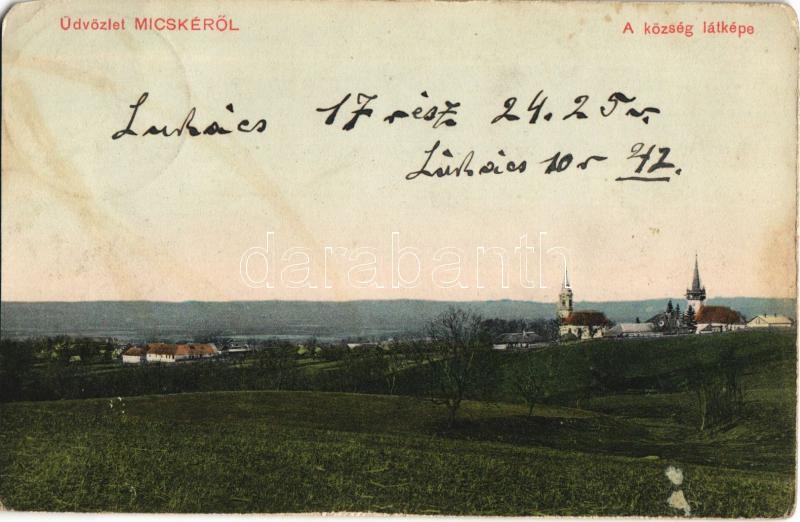 Üdvözlet MICSKÉRŐL
A község látképe
Lukács 17 rész 24. 25 v.
Lukács 10 r 42.
darabanth